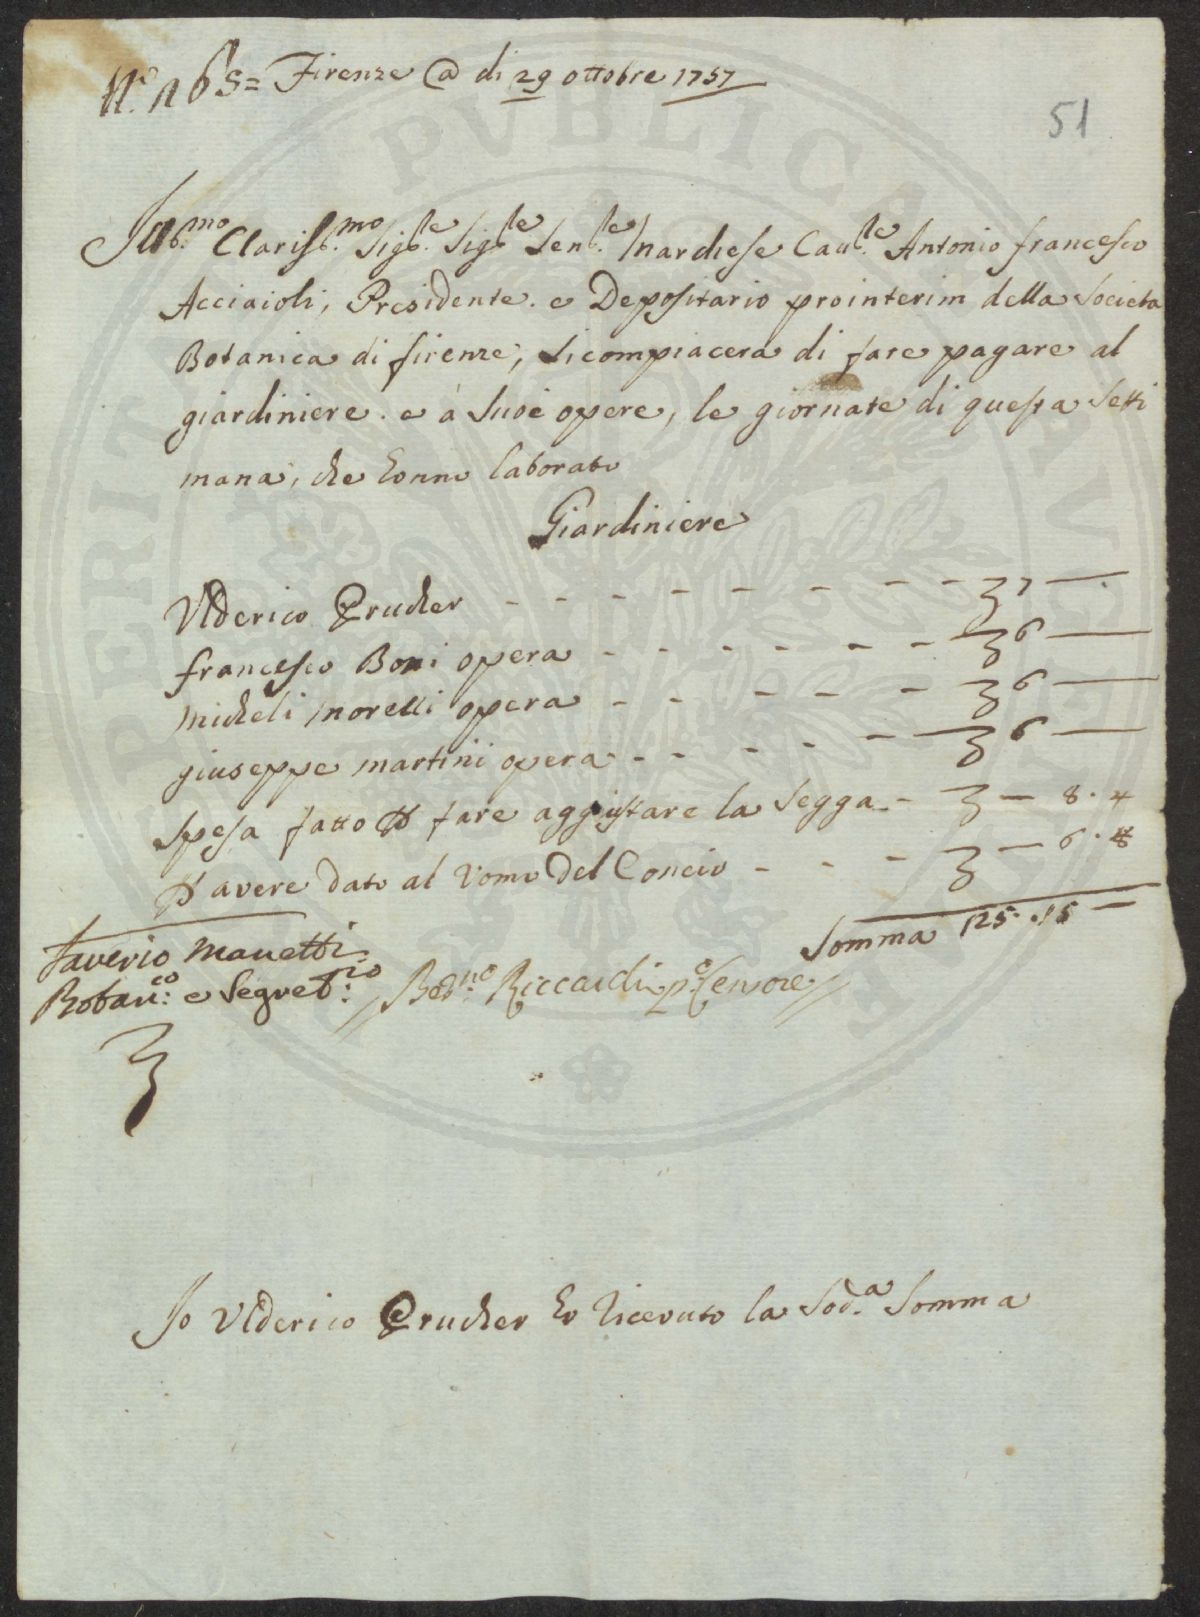 N.º 165= Firenze @ di 29 ottobre 1757
51
Ill:mo Clariss:mo Sig:re Sig:re Sen:re Marchese Cau:re Antonio francesco
Acciaioli, Presidente. e Depositario prointerim della Societa
Botanica di firenze, si compiacera di fare pagare al
giardiniere. e à Suoe opere, le giornate di questa Setti
mana, che honno laborato
Giardiniere
Vlderico Prucher - - - - - - - - - 7 —
francesco Boni opera - - - - - - 6 —
Micheli Morelli opera - - - - - 6 —
giuseppe martini opera - - - - - 6 —
Spesa fatto p fare aggiustare la Segga - — 8. 4
p avere dato al Vomo Del Concio - - - — 6. 8
Somma 25. 15 —
Saverio Manetti
Botan:co e Segret:rio
Ber:no Riccardi p:o Censore
Io Vlderico Prucher ho Ricevuto la Sod.a Somma
PVBLICA
PERIT